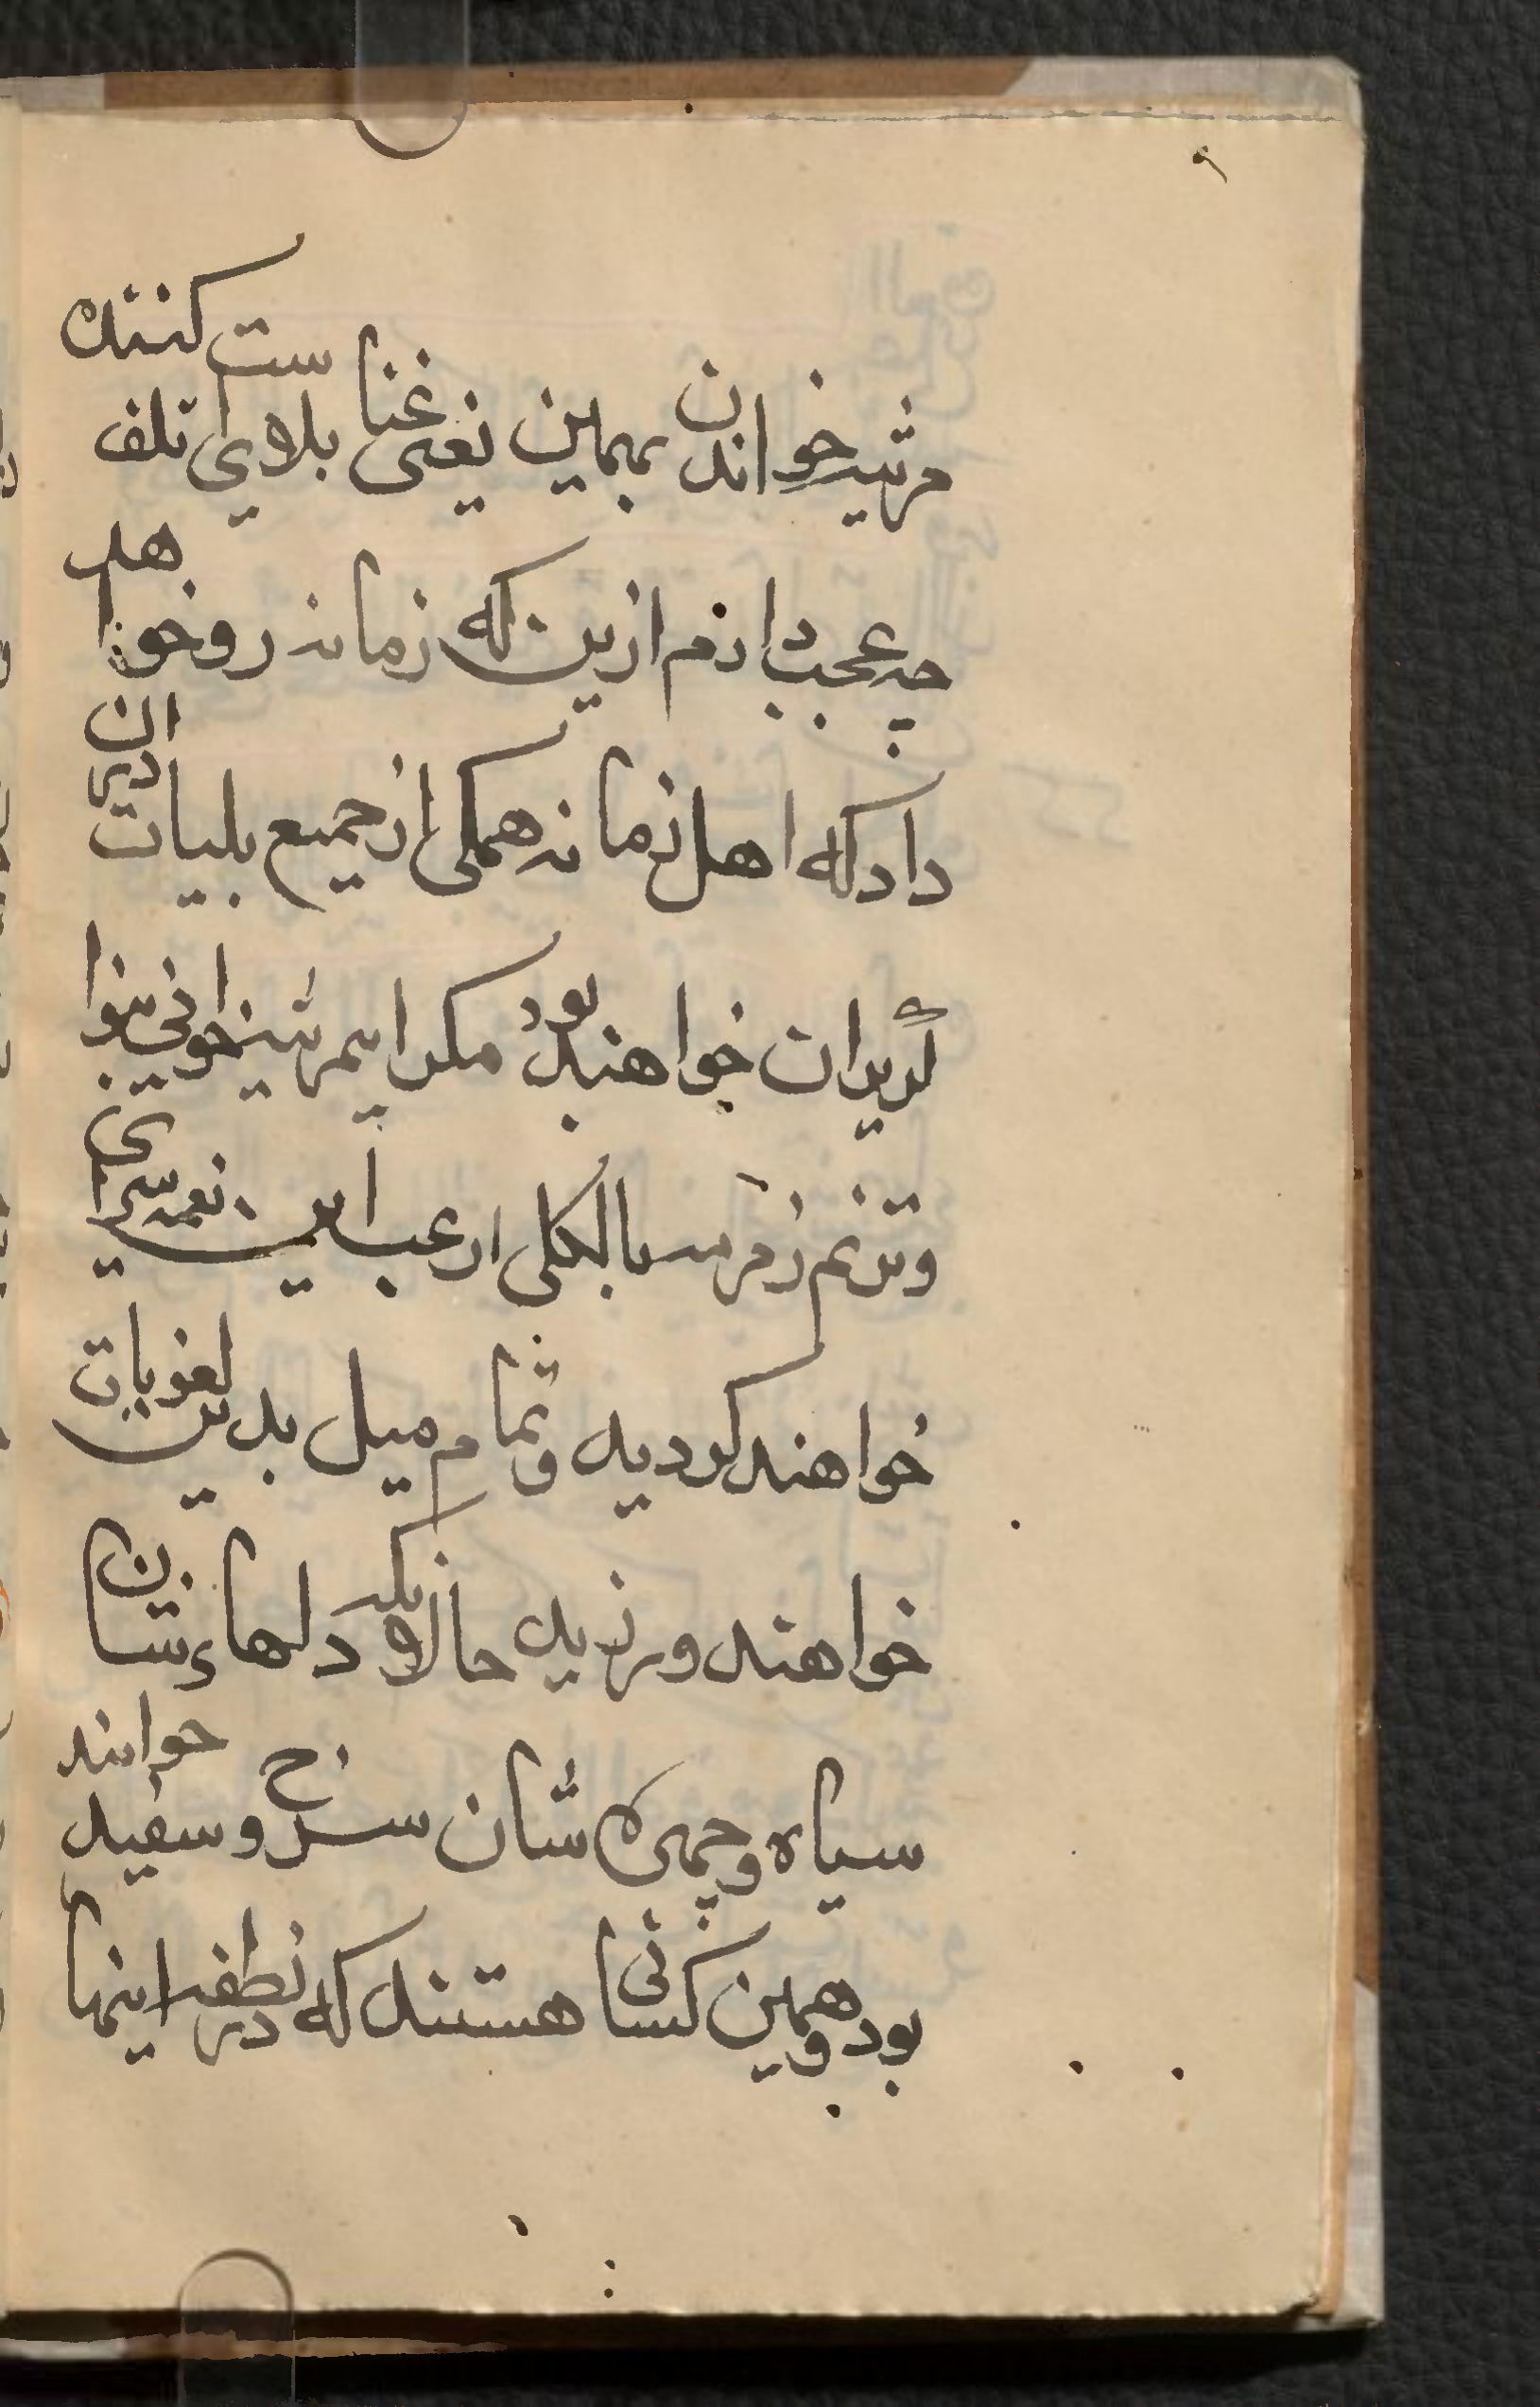 ۹
مرثیه خواندن بهمین یعنی غنا بلای ست تلف کننده
چه عجب دارم ازین که زمانه رو خواهد
داد که اهل زمانه همکی از جمیع بلیات در ان
کریزان خواهند بود مکر ایمرثیه خوانی بنوا
وترنم زمزمه بالکلی از عیب این نغمه سرای
خواهند کردید وتمام میل بدین لغویات
خواهند ورزید حالانکه دلهاء شان
سیاه وچهره شان سرخ وسفید خوانند
بود وهمین کسانی هستند که در نطفه اینها